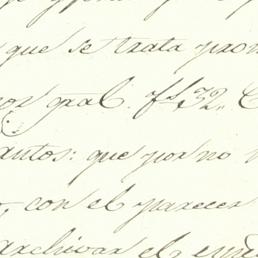 que se trata pron
gral. fs 32,, C
autos: que por no
, con el parecer
archivar el